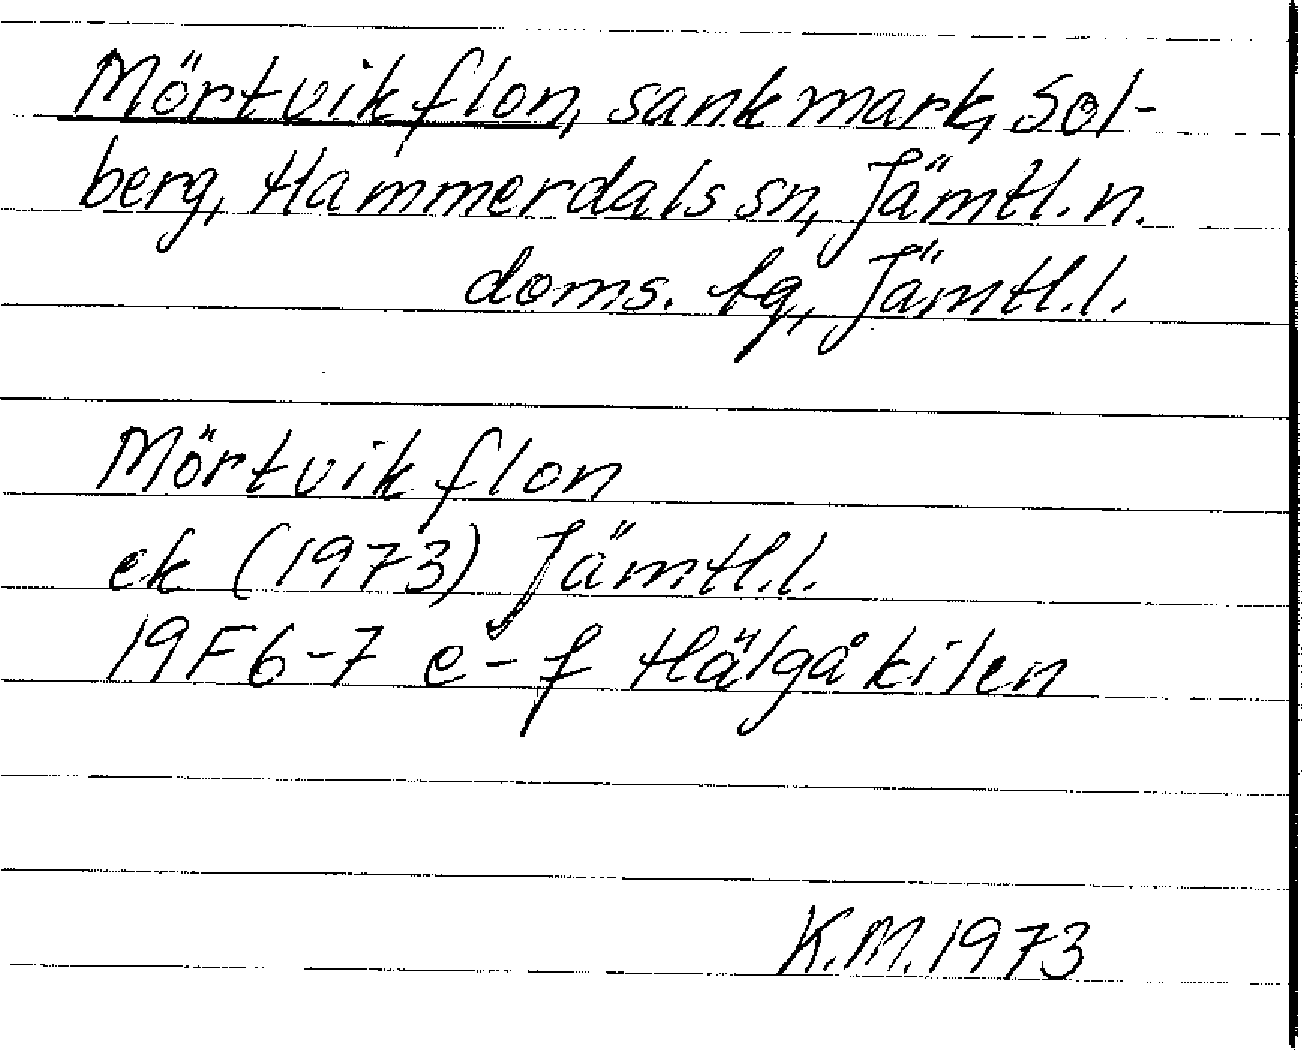 Mörtvikflon, sankmark, Sol-
berg, Hammerdals sn, Jämtl. n.
doms. tg, Jämtl.l.
Mörtvikflon
ek (1973) Jämtl.l.
19F6-7 e-f Hälgåkilen
K.M. 1973